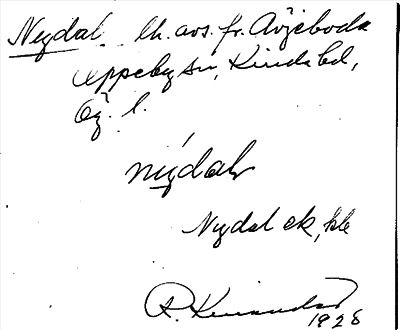 Nydal lh. avs. fr. Avjeboda
Oppeby sn, Kinda hd,
Ög. l.
nýdal
Nydal ek, kle
R.
1928